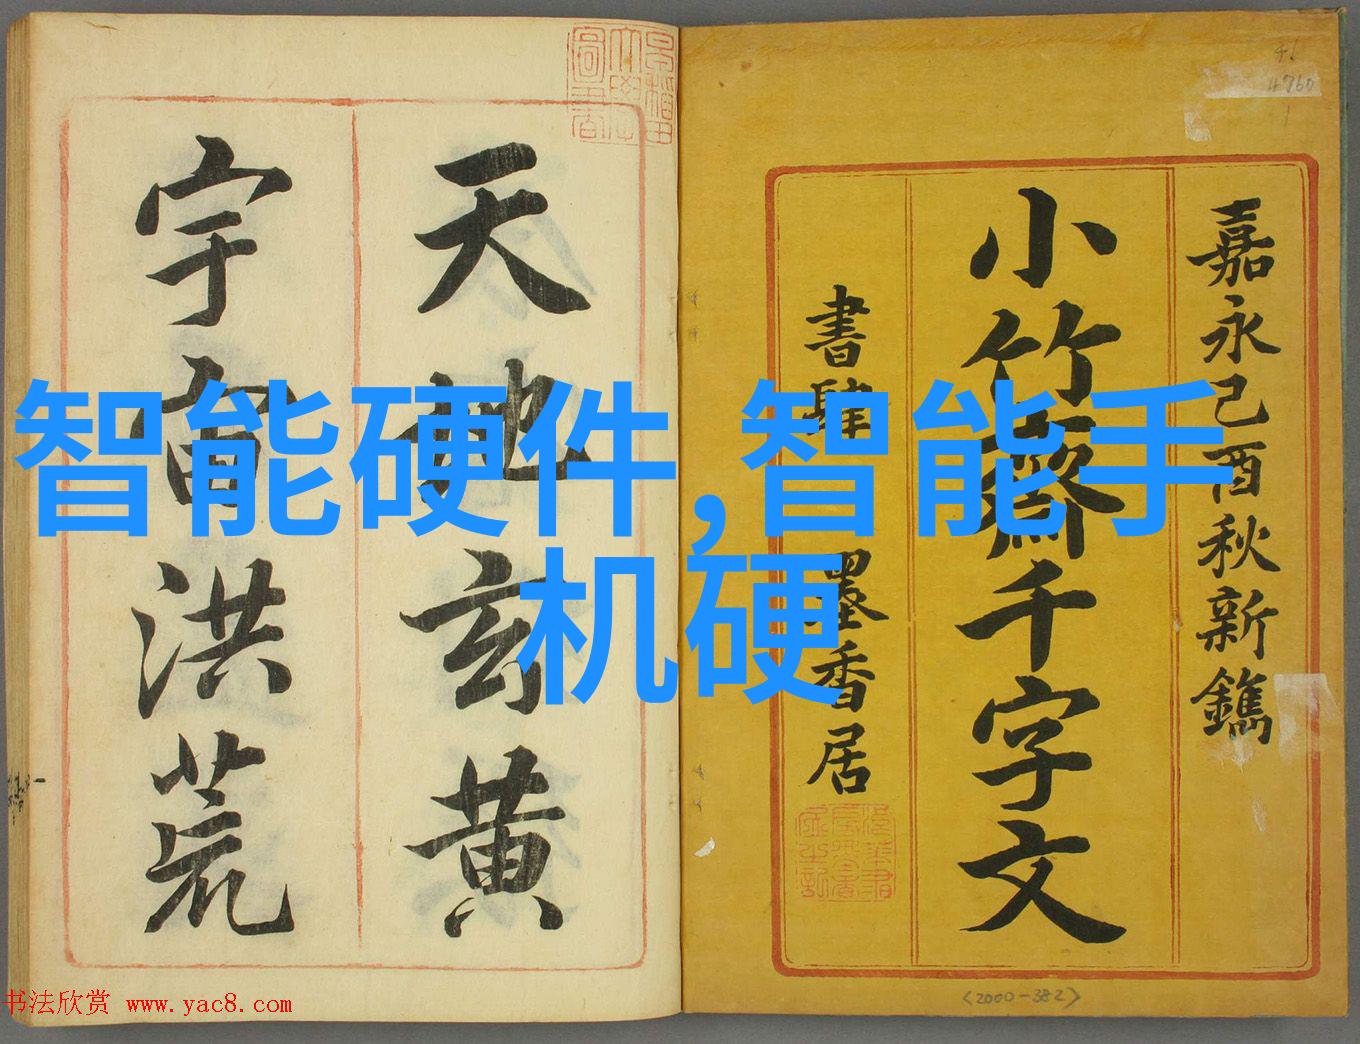 嘉永己酉秋新鐫
小竹齋千字文
書肆 墨香居
天地玄黄
宇宙洪荒
智能硬件,智能手
机硬
46
4760
1
<2000-382>
书法欣赏 www.yac8.com